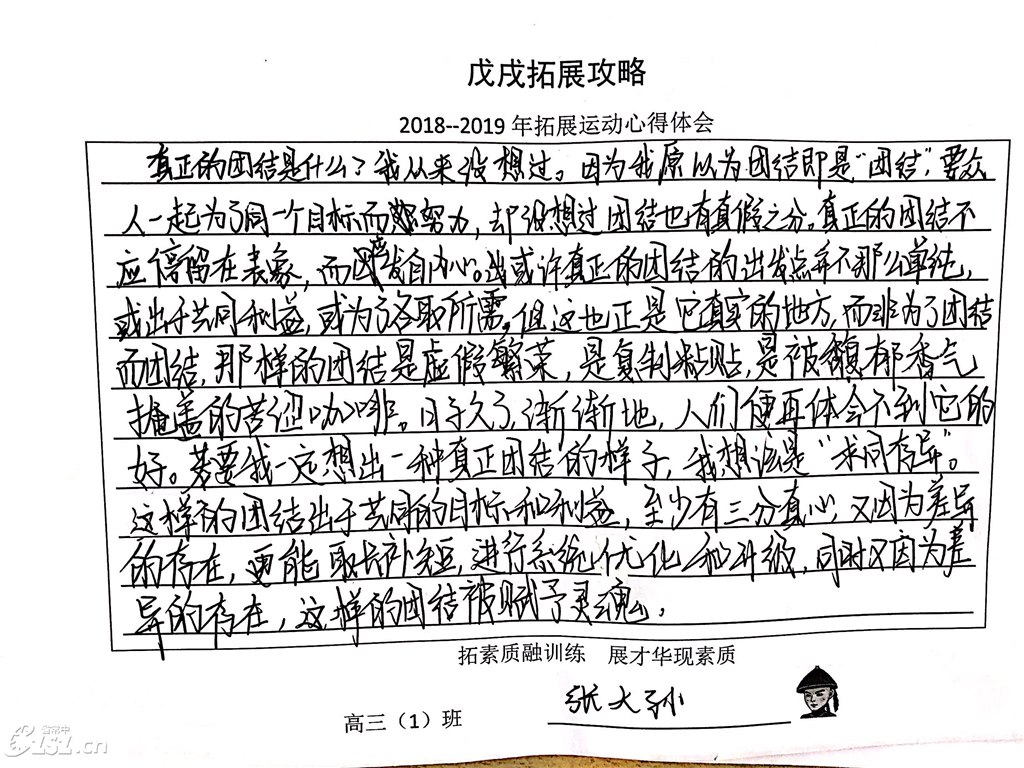 戊戌拓展攻略
2018--2019 年拓展运动心得体会
真正的团结是什么？我从来没想过。因为我原以为团结即是“团结”，要众
人一起为了同一个目标而努力，却没想过团结也有真假之分。真正的团结不
应停留在表象，而应发自内心。或许真正的团结的出发点并不那么单纯，
或出于共同利益，或为了各取所需，但这也正是它真实的地方，而非为了团结
而团结，那样的团结是虚假繁荣，是复制粘贴，是被馥郁香气
掩盖的苦涩咖啡。日子久了，渐渐地，人们便再体会不到它的
好。若要我一定想出一种真正团结的样子，我想该是“求同存异”。
这样的团结出于共同的目标和利益，至少有三分真心，又因为差异
的存在，更能取长补短，进行系统优化和升级，同时又因为差
异的存在，这样的团结被赋予灵魂。
拓素质融训练 展才华现素质
高三（1）班
张大孙
ci5i.cn